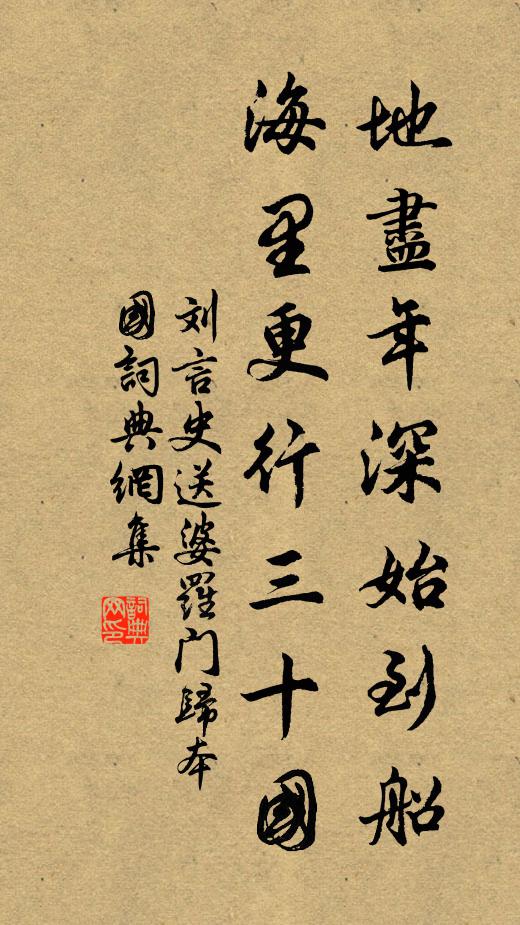 地盡年深始到船
海里更行三十國
刘言史送婆羅门歸本
國詞典網集
詞典网印